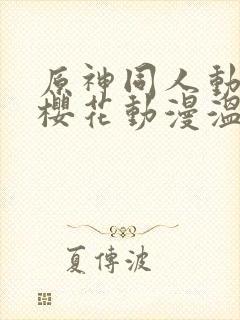 原神同人動
櫻花動漫溫
夏傳波